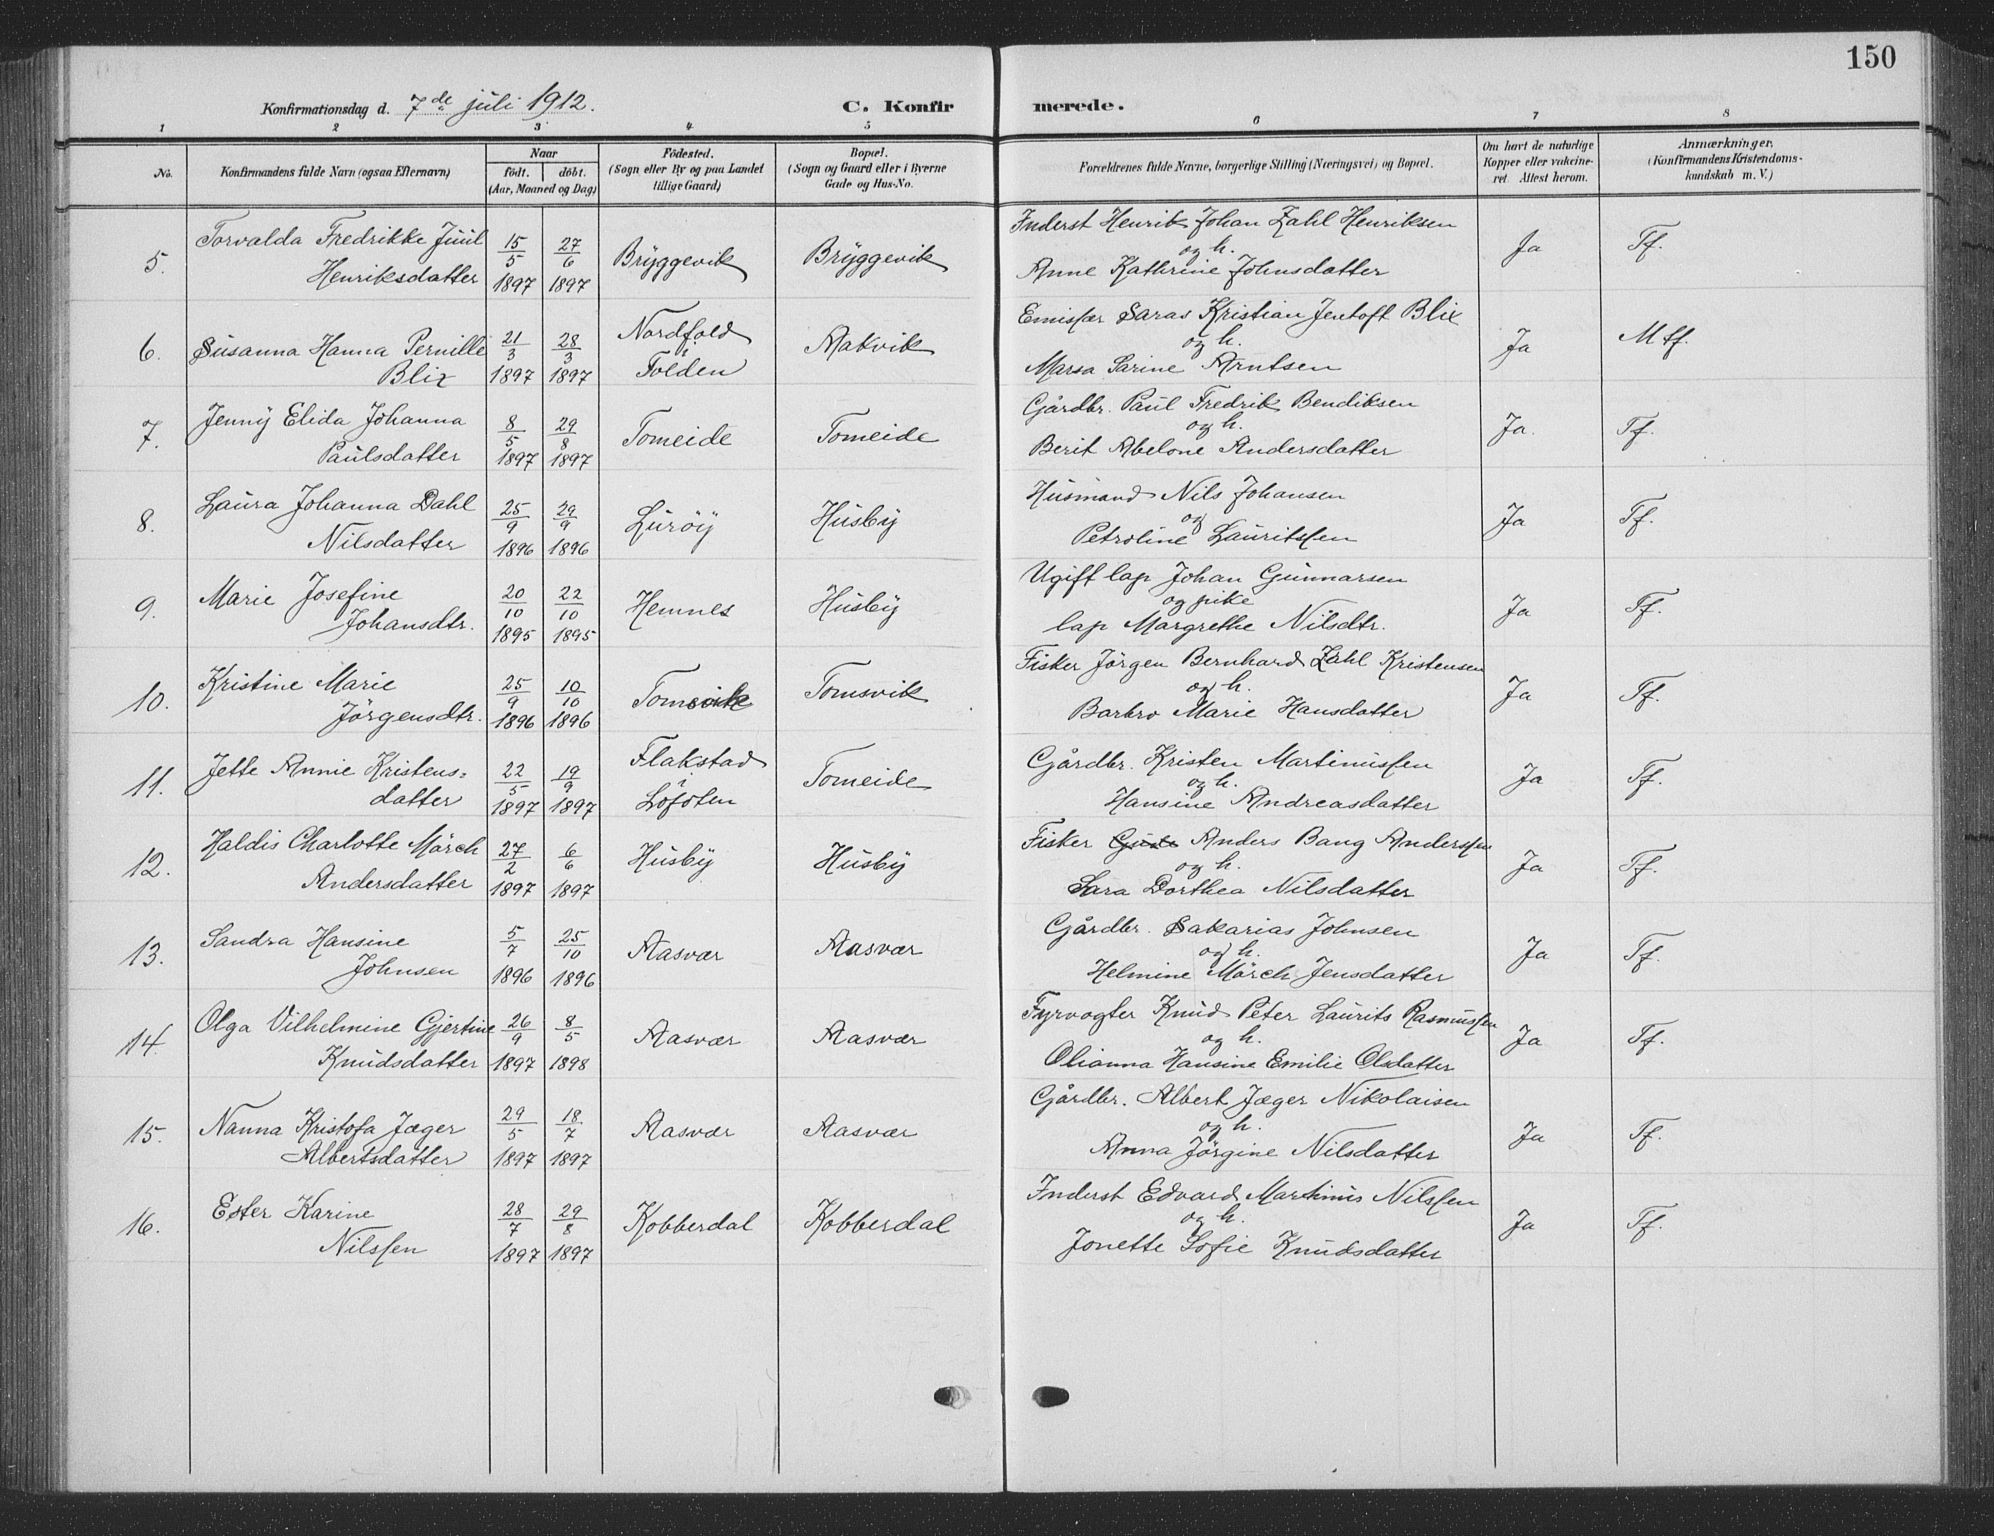 150
Konfirmationsdag d. 7de juli 1912.
C. Konfirmerede.
1 2 3 4 5 6 7 8
No.
Konfirmandens fulde Navn (ogsaa Efternavn)
Naar
födt. döbt.
(Aar, Maaned og Dag)
Födested.
(Sogn eller By og paa Landet
tillige Gaard)
Bopæl.
(Sogn og Gaard eller i Byerne
Gade og Hus-No.
Forældrenes fulde Navne, borgerlige Stilling (Næringsvei) og Bopæl.
Om havt de naturlige
Kopper eller vakcine-
ret. Attest herom.
Anmærkninger.
(Konfirmandens Kristendoms-
kundskab m. V.)
5. Torvalda Fredrikke Juul Henriksdatter 15/5 1897 27/6 1897 Bryggevik Bryggevik
Inderst Henrik Johan Zahl Henriksen
og h.
Anne Kathrine Johnsdatter
Ja Tf.
6. Susanna Hanna Pernille Blix 21/3 1897 28/3 1897 Nordfold i Folden Aakvik
Emissær Saras Kristian Jentoft Blix
og h.
Marsa Sarine Arntsen
Ja Mtf.
7. Jenny Elida Johanna Paulsdatter 8/5 1897 29/8 1897 Tomeide Tomeide
Gårdbr. Paul Fredrik Bendiksen
og h.
Berit Abelone Andersdatter
Ja. Tf.
8. Laura Johanna Dahl Nilsdatter 25/9 1896 29/9 1896 Luröy Husby
Husmand Nils Johansen
og
Petroline Lauritssen
Ja Tf.
9. Marie Josefine Johansdtr. 20/10 1895 22/10 1895 Hemnes Husby
Ugift lap Johan Gunnarsen
og pike
lap Margrethe Nilsdtr.
Ja Tf.
10. Kristine Marie Jörgensdtr. 25/9 1896 10/10 1896 Tomsvik Tomsvik
Fisker Jörgen Bernhard Zahl Kristensen
og h.
Barbro Marie Hansdatter
Ja Tf.
11. Jette Annie Kristens= datter 22/5 1897 19/9 1897 Flakstad i Lofoten Tomeide
Gårdbr. Kristen Martinussen
og h.
Hansine Andreasdatter
Ja Tf.
12. Haldis Charlotte Mörch Andersdatter 27/2 1897 6/6 1897 Husby Husby
Fisker Anders Bang Anderssen
og h.
Sara Dorthea Nilsdatter
Ja Tf.
13. Sandra Hansine Johnsen 5/7 1896 25/10 1896 Aasvær Aasvær
Gårdbr. Sakarias Johnsen
og h.
Helmine Mörch Jensdatter
Ja Tf.
14. Olga Vilhelmine Gjertine Knudsdatter 26/9 1897 8/5 1898 Aasvær Aasvær
Fyrvogter Knud Peter Laurits Rasmussen
og h.
Olianna Hansine Emilie Olsdatter
Ja Tf.
15. Nanna Kristofa Jæger Albertsdatter 29/5 1897 18/7 1897 Aasvær Aasvær
Gårdbr. Albert Jæger Nikolaisen
og h.
Anna Jörgine Nilsdatter
Ja Tf.
16. Ester Karine Nilssen 28/7 1897 29/8 1897 Kobberdal Kobberdal
Inderst Edvard Martinus Nilssen
og h.
Jonette Sofie Knudsdatter
Ja Tf.